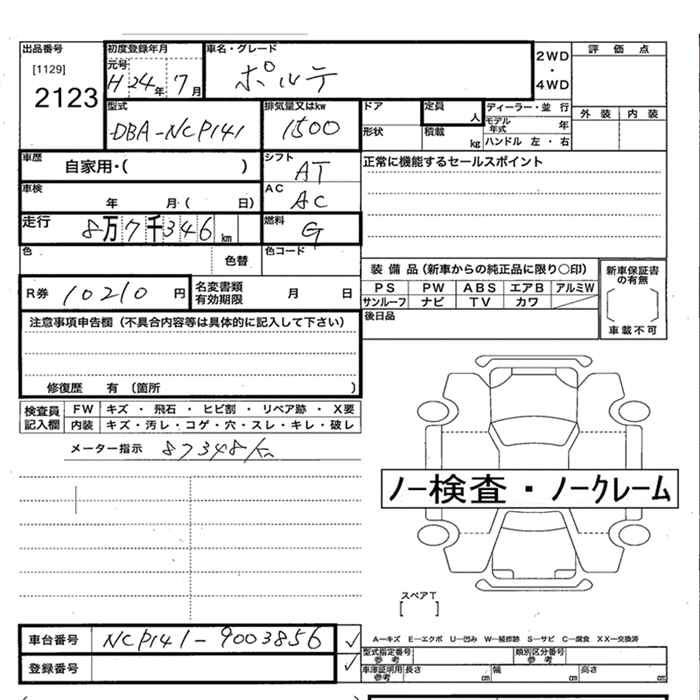 出品番号 初度登録年月 車名・グレード 2WD・4WD 評価点
[1129] 元号 H24年7月 ポルテ
2123 外装 内装
型式 排気量又はkw ドア 定員 人 ディーラー・並 行
DBA-NCP141 1500 形状 積載 kg モデル年式 年
ハンドル 左・右
車歴 自家用・( ) シフト AT 正常に機能するセールスポイント
車検 年 月( 日) AC AC
走行 8万7千346km 燃料 G
色 色替 色コード
装備品(新車からの純正品に限り〇印) 新車保証書の有無
R券 10210円 名変書類有効期限 月 日 PS PW ABS エアB アルミW
サンルーフ ナビ TV カワ 車載不可
注意事項申告欄(不具合内容等は具体的に記入して下さい) 後日品
修復歴 有(箇所 )
検査員記入欄 FW キズ・飛石・ヒビ割・リペア跡・X要
内装 キズ・汚レ・コゲ・穴・スレ・キレ・破レ
メーター指示 87348km
ノー検査・ノークレーム
スペアT
[ ]
車台番号 NCP141-9003856 ✓ A—キズ E—エクボ U—凹み W—補修跡 S—サビ C—腐食 XX—交換済
登録番号 ✓ 型式指定番号参考 類別区分番号参考
車庫証明用参考 長さ cm 幅 cm 高さ cm